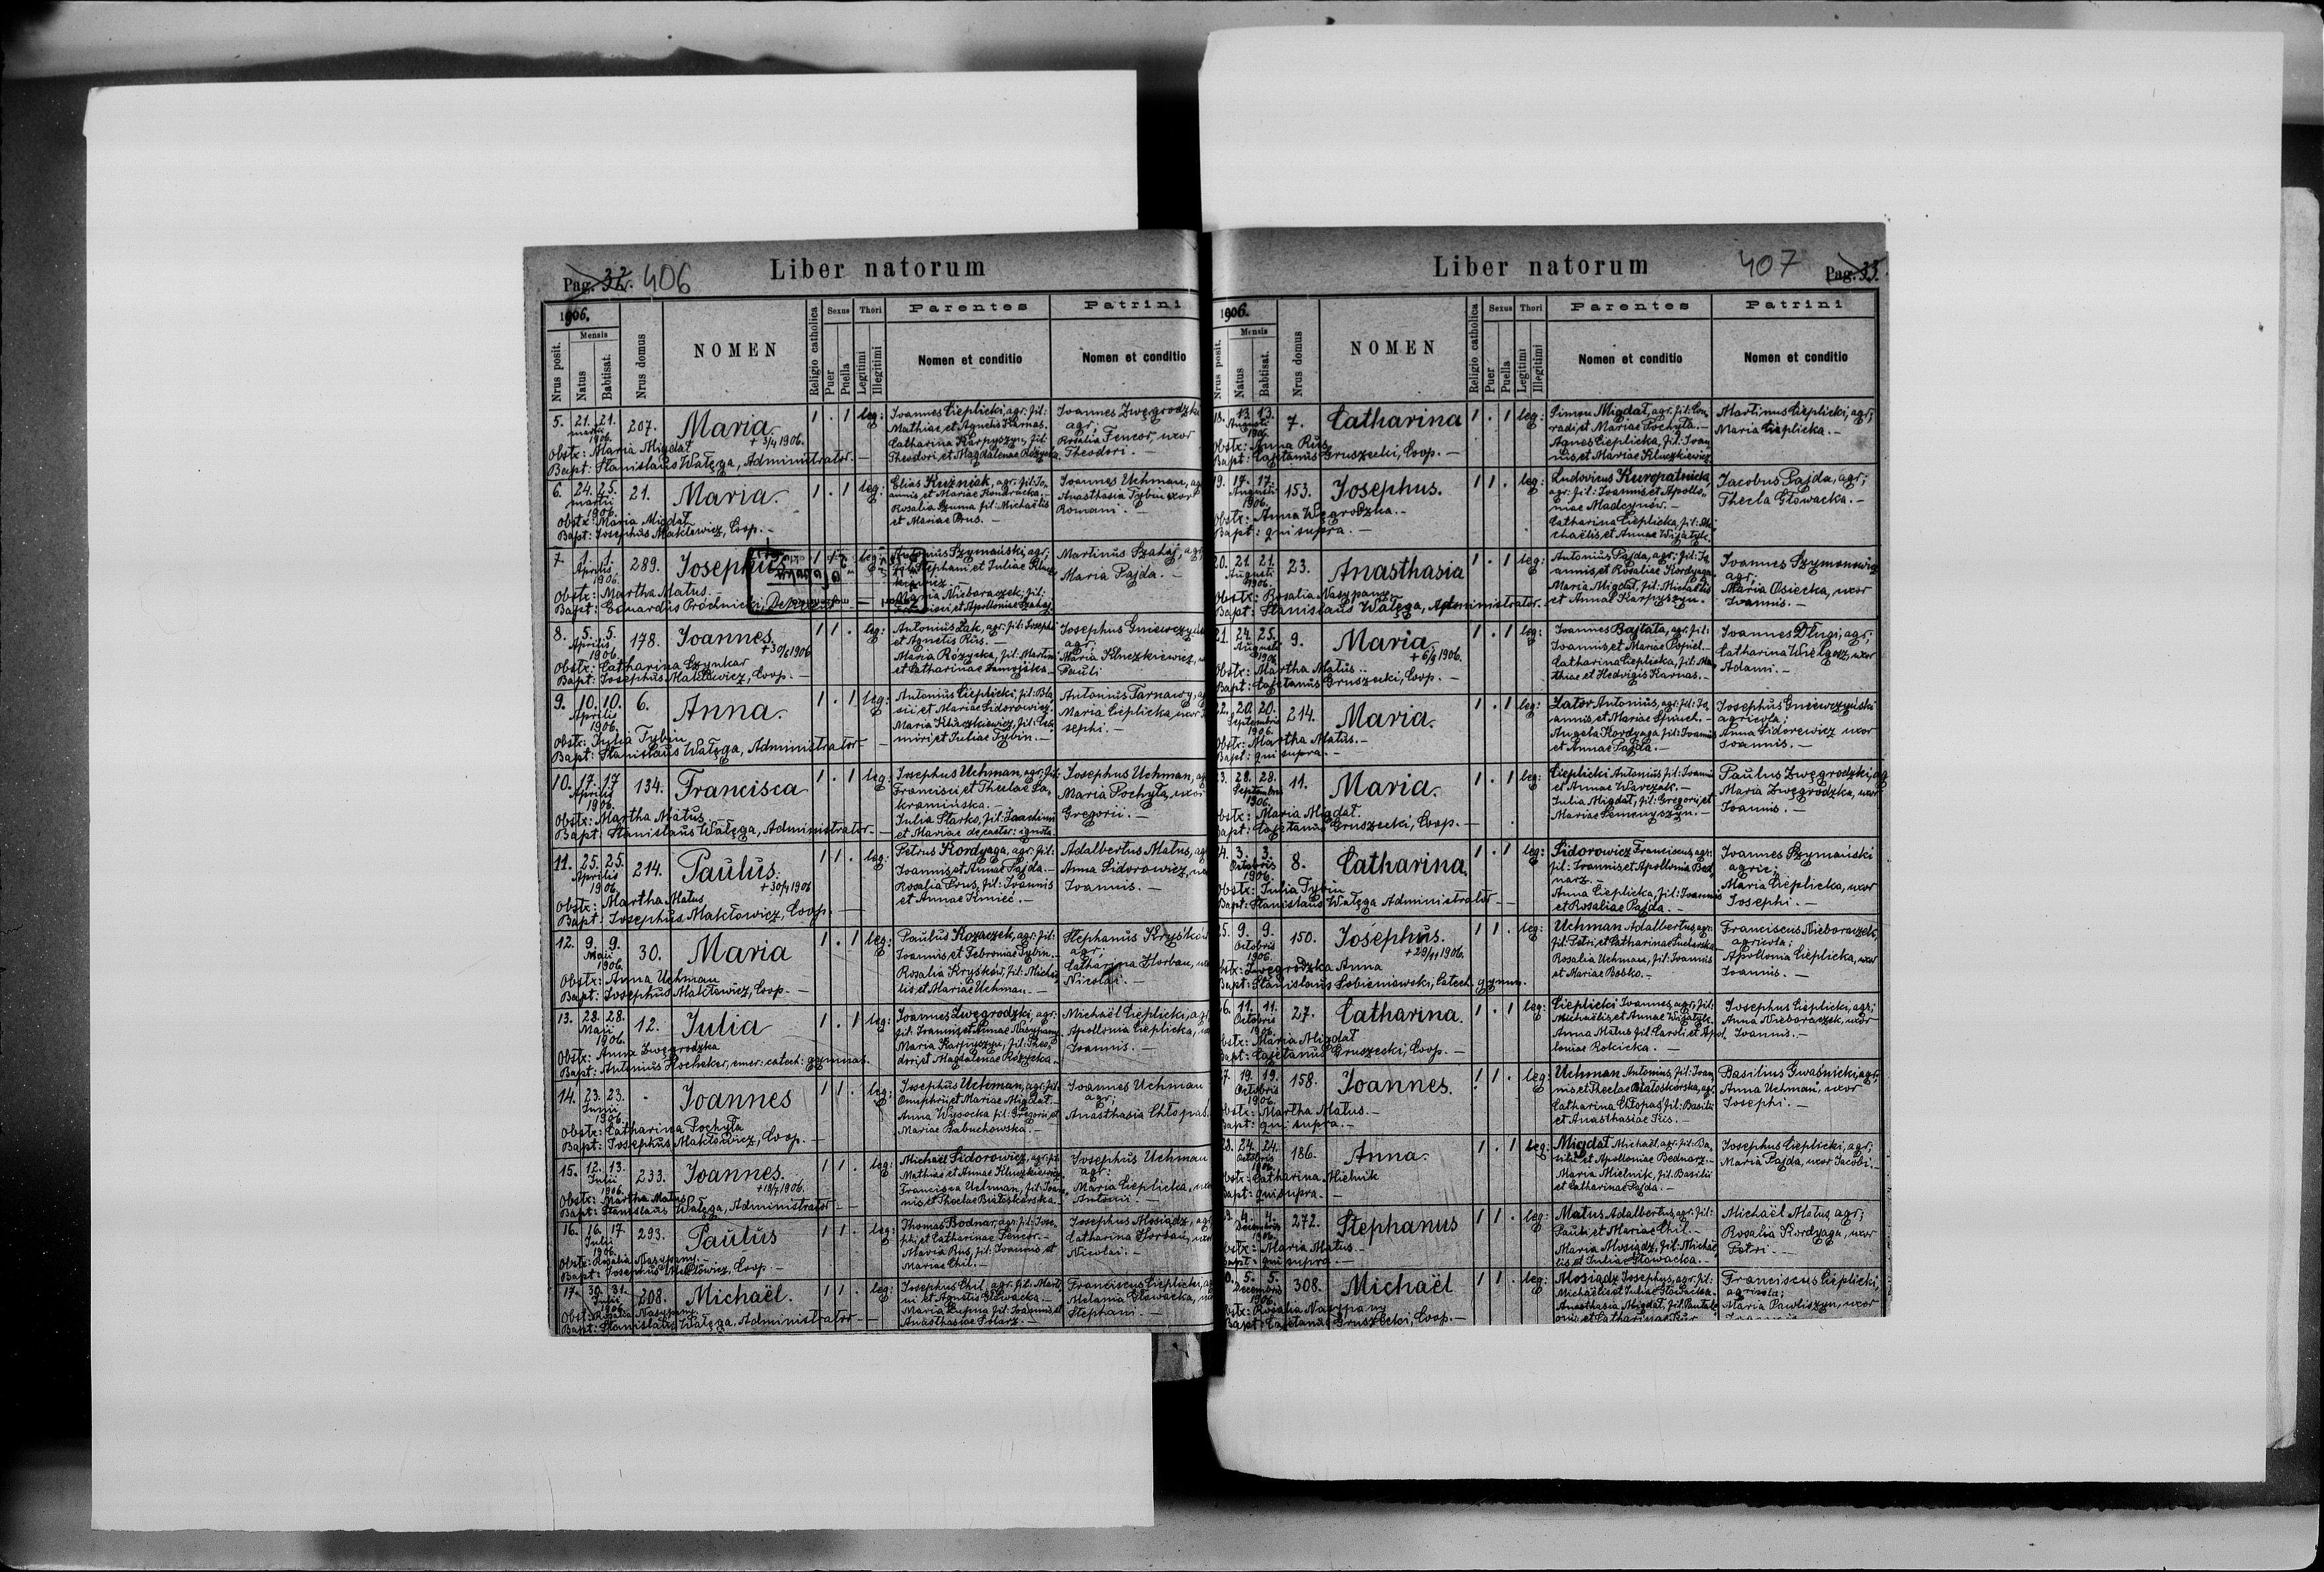 Pag. 32. 406
Liber natorum
1906.
Nrus posit.
Mensis
Natus
Babtisat.
Nrus domus
NOMEN
Religio catholica
Sexus
Puer
Puella
Thori
Legitimi
Illegitimi
Parentes
Nomen et conditio
Patrini
Nomen et conditio
5. 21. 21. martii 1906. 207. Maria + 3/4 1906. 1 . 1 leg:
Joannes Cieplicki, agr: fil:
Mathiae et Agnetis Karnas.
Catharina Karpyszyn, fil:
Theodori et Magdalenae Rózycka.
Joannes Zwęgrodzki
agr;
Rosalia Fencor, uxor
Theodori. –
Obstr: Maria Migdał
Bapt: Stanislaus Wałęga, Administrator. –
6. 24. 25. martii 1906. 21. Maria. 1 . 1 leg:
Elias Kuźniak, agr: fil: Jo-
annis et Mariae Kondracka. –
Rosalia Szuma fil: Michaëlis
et Mariae Prus. –
Joannes Uchman, ag
Anasthasia Tybin uxor
Romani. –
Obstr: Maria Migdał
Bapt: Josephus Makłowicz, Coop. –
7 1. 1. Aprilis 1906. 289. Josephus leg:
Antonius Szymański, agr;
fil: Stephani et Juliae
Maria Nieboraczek, fil:
et Apolloniae Szahaj
Martinus Szahaj, agr
Maria Pajda. –
Obstr: Martha Matus. –
Bapt: Pródnicki,
8. 5. 5. Aprilis 1906. 178. Joannes + 30/6 1906 1 1 . leg:
Antonius Żak, agr: fil: Josephi
et Agnetis Rus. –
Maria Rózycka, fil: Martini
et Catharinae
Josephus Gniewczyński
agr;
Maria Kluczkiewicz, u
Pauli
Obstr: Catharina Szynkar
Bapt: Josephus Makłowicz, Coop. –
9. 10. 10. Aprilis 1906. 6. Anna. 1 . 1 leg:
Antonius Cieplicki, fil: Bla-
sii et Mariae Sidorowicz.
Maria Kluczkiewicz, fil:
et Juliae Tybin. –
Antonius Tarnawy, ag
Maria Cieplicka, uxor Jo
sephi. –
Obstr: Julia Tybin
Bapt: Stanislaus Wałęga, Administrator –
10. 17. 17 Aprilis 1906. 134. Francisca 1 . 1 leg:
Josephus Uchman, agr: fil:
Francisci et Theclae Za-
kramińska. –
Julia Starko, fil: Joachimi
et Mariae de caeter: ignota
Josephus Uchman, ag
Maria Pochyła, uxor
Gregorii. –
Obstr: Martha Matus
Bapt: Stanislaus Wałęga, Administrator. –
11. 25. 25. Aprilis 1906 214. Paulus. + 30/4 1906 1 1 . leg:
Petrus Kordyaga, agr: fil:
Joannis, et Annae Pajda. –
Rosalia Prus, fil: Joannis
et Annae Kmieć. –
Adalbertus Matus, ag
Anna Sidorowicz, ux
Joannis. –
Obstr: Martha Matus
Bapt: Josephus Makłowicz, Coop. –
12. 9. 9. Maii 1906. 30. Maria 1 . 1 leg:
Paulus Kozaczek, agr: fil:
Joannis, et Febroniae Tybin. –
Rosalia Kryśków, fil: Michaë
lis, et Mariae Uchman. –
Stephanus Kryśków
agr;
Catharina Horban, ux
Nicolai. –
Obstr: Anna Uchman
Bapt: Josephus Makłowicz, Coop. –
13. 28. 28. Maii 1906. 12. Julia 1 . 1 leg:
Joannes Zwęgrodzki, agr:
fil: Joannis, et Annae Nasypany
Maria Karpyszyn, fil: Theo-
dori, et Magdalenae Rózycka. –
Michaël Cieplicki, agr
Apollonia Cieplicka, ux
Joannis. –
Obstr: Anna Zwęgrodzka
Bapt: Antonius Kocheker, emer: catech: gymnas.
14. 23. 23. Junii 1906. . Joannes 1 1 . leg:
Josephus Uchman, agr: fil:
Onuphrii, et Mariae Migdał. –
Anna Wysocka fil: Gregorii, et
Mariae Babuchowska. –
Joannes Uchman
agr;
Anasthasia Chłopaś
Obstr: Catharina Pochyła
Bapt: Josephus Makłowicz, Coop. –
15. 12. 13. Julii 1906. 233. Joannes. + 18/7 1906. 1 1 . leg:
Michaël Sidorowicz, agr: fil:
Mathiae et Annae Kluczkiewicz
Francisca Uchman, fil: Joan-
nis, et Theclae Białoskórska. –
Josephus Uchman
agr:
Maria Cieplicka, uxor
Antonii. –
Obstr: Martha Matus
Bapt: Stanislaus Wałęga, Administrator –
16. 16. 17 Julii 1906. 293. Paulus 1 1 . leg:
Thomas Bodnar, agr: fil: Jose-
phi, et Catharinae Fencor. –
Maria Rus, fil: Joannis et
Mariae Chil. –
Josephus Mosiądz, agr
Catharina Horban, uxor
Nicolai. –
Obstr: Rosalia Nasypany
Bapt: Josephus Makłowicz, Coop. –
17. 30. 31. Julii 1906. 208. Michaël. 1 1 . leg:
Josephus Chil, agr: fil: Marti
ni et Agnetis Głowacka. –
Maria Supma fil: Joannis, et
Anasthasiae Polarz. –
Franciscus Cieplicki, ag
Melania Głowacka, ux
Stephani. –
Obst: Rosalia Nasypany
Bapt: Stanislaus Wałęga, Administrator –
Liber natorum
407 Pag. 33.
1906.
Nrus posit.
Mensis
Natus
Babtisat.
Nrus domus
NOMEN
Religio catholica
Sexus
Puer
Puella
Thori
Legitimi
Illegitimi
Parentes
Nomen et conditio
Patrini
Nomen et conditio
18. 13. 13. Augusti 1906 7. Catharina 1 . 1 leg:
Simon Migdał, agr: fil: Con-
radi, et Mariae Pochyła. –
Agnes Cieplicka, fil: Joan
nis, et Mariae Kluczkiewicz
Martinus Cieplicki, agr;
Maria Cieplicka. –
Obstr: Anna Rus
Bapt: Cajetanus Gruszecki, Coop. –
19. 17. 17. Augusti 1906. 153. Josephus. 1 1 . leg:
Ludovicus Kuropatnicki,
agr: fil: Joannis, et Apollo-
niae Madejnów. –
Catharina Cieplicka, fil: Mi-
chaëlis, et Annae Wijatyk.
Jacobus Pajda, agr;
Thecla Głowacka. –
Obstr: Anna Węgrodzka. –
Bapt: qui supra. –
20. 21. 21. Augusti 1906. 23. Anasthasia 1 . 1 leg:
Antonius Pajda, agr: fil: Jo-
annis, et Rosaliae Kordyaga
Maria Migdał, fil: Michaëlis
et Annae Karpyszyn. –
Joannes Szymonowicz
agr;
Maria Osiecka, uxor
Joannis. –
Obstr: Rosalia Nasypany
Bapt: Stanislaus Wałęga, Administrator. –
21. 24. 25. Augusti 1906 9. Maria + 6/9 1906. 1 . 1 leg:
Joannes Bajtała, agr: fil:
Joannis, et Mariae Popiel. –
Catharina Cieplicka, fil: Ma-
thiae et Hedvigis Karnas. –
Joannes Długi, agr;
Catharina Wielgosz, uxor
Adami. –
Obstr: Martha Matus. –
Bapt: Cajetanus Gruszecki, Coop. –
22. 20. 20. Septembris 1906. 214. Maria. 1 . 1 leg:
Zator Antonius, agr: fil: Jo-
annis, et Mariae Spiuch. –
Angela Kordyaga fil: Joannis
et Annae Pajda. –
Josephus Gniewczyński
agricola;
Anna Sidorewicz uxor
Joannis. –
Obstr: Martha Matus. –
Bapt: qui supra. –
23. 28. 28. Septembris 1906. 11. Maria. 1 . 1 leg:
Cieplicki Antonius, fil: Joannis
et Annae Warczak. –
Julia Migdał, fil: Gregorii, et
Mariae Semenyszyn. –
Paulus Zwęgrodzki, ag
Maria Zwęgrodzka, uxor
Joannis. –
Obstr: Maria Migdał.
Bapt: Cajetanus Gruszecki, Coop. –
24. 3. 3. Octobris 1906. 8. Catharina. 1 . 1 leg:
Sidorowicz Franciscus, agr:
fil: Joannis, et Apollonia Bed-
narz. –
Anna Cieplicka, fil: Joannis
et Rosaliae Pajda. –
Joannes Szymański
agric;
Maria Cieplicka, uxor
Josephi. –
Obstr: Julia Tybin
Bapt: Stanislaus Wałęga Administrator. –
25. 9. 9. Octobris 1906. 150. Josephus. + 29/11 1906. 1 1 . leg:
Uchman Adalbertus, agr:
fil: Petri, et Catharinae Sucharska
Rosalia Uchman, fil: Joannis
et Mariae Bobko. –
Franciscus Nieboraczek,
agricola;
Apollonia Cieplicka, uxor
Joannis. –
Obstr: Zwęgrodzka Anna
Bapt: Stanislaus Sobieniowski, Catech. gymn.
26. 11. 11. Octobris 1906. 27. Catharina. 1 . 1 leg:
Cieplicki Joannes, agr: fil:
Michaëlis, et Annae Wijatyk.
Anna Matus, fil: Caroli et Apol-
loniae Rokicka. –
Josephus Cieplicki, agr;
Anna Nieboraczek, uxor
Joannis. –
Obstr: Maria Migdał
Bapt: Cajetanus Gruszecki, Coop. –
27. 19. 19. Octobris 1906. 158. Joannes. 1 1 . leg:
Uchman Antonius, fil: Joan-
nis, et Theclae Białoskórska, agr
Catharina Chłopaś, fil: Basilii
et Anasthasiae Kis. –
Basilius Gwaśnicki, agr;
Anna Uchman, uxor
Josephi. –
Obstr: Martha Matus. –
Bapt: qui supra. –
28. 24. 24. Octobris 1906. 186. Anna. 1 . 1 leg:
Migdał Michaël, agr: fil: Ba-
silii et Apolloniae Bednarz. –
Maria Mielnik, fil: Basilii
et Catharinae Pajda. –
Josephus Cieplicki, agr;
Maria Pajda, uxor Jacobi. –
Obstr: Catharina Mielnik
Bapt: qui supra. –
29. 4. 4. Decembris 1906. 272. Stephanus 1 1 . leg:
Matus Adalbertus, agr: fil:
Pauli et Mariae Chil. –
Maria Mosiądz, fil: Michaë-
lis, et Juliae Głowacka. –
Michaël Matus, agr;
Rosalia Kordyaga, uxor
Petri. –
Obstr: Maria Matus. –
Bapt: qui supra. –
30. 5. 5. Decembris 1906. 308. Michaël 1 1 . leg:
Mosiądz Josephus, agr: fil:
Michaëlis et Juliae Głowacka. –
Anasthasia Migdał, fil: Pantale-
onis, et Catharinae Rus
Franciscus Cieplicki,
agricola;
Maria Pawliszyn, uxor
Joannis
Obstr: Rosalia Nasypany
Bapt: Cajetanus Gruszecki, Coop. –